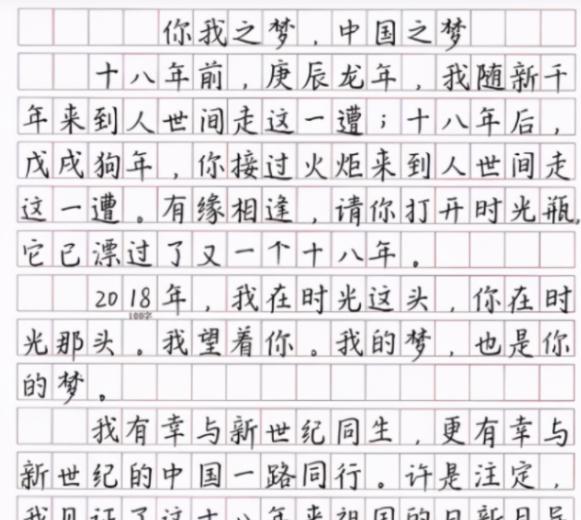 你我之梦，中国之梦
十八年前，庚辰龙年，我随新千
年来到人世间走这一遭；十八年后，
戊戌狗年，你接过火炬来到人世间走
这一遭。有缘相逢，请你打开时光瓶，
它已漂过了又一个十八年。
2018年，我在时光这头，你在时
100字
光那头。我望着你。我的梦，也是你
的梦。
我有幸与新世纪同生，更有幸与
新世纪的中国一路同行。许是注定，
我见证了这十八年来祖国的日新月异